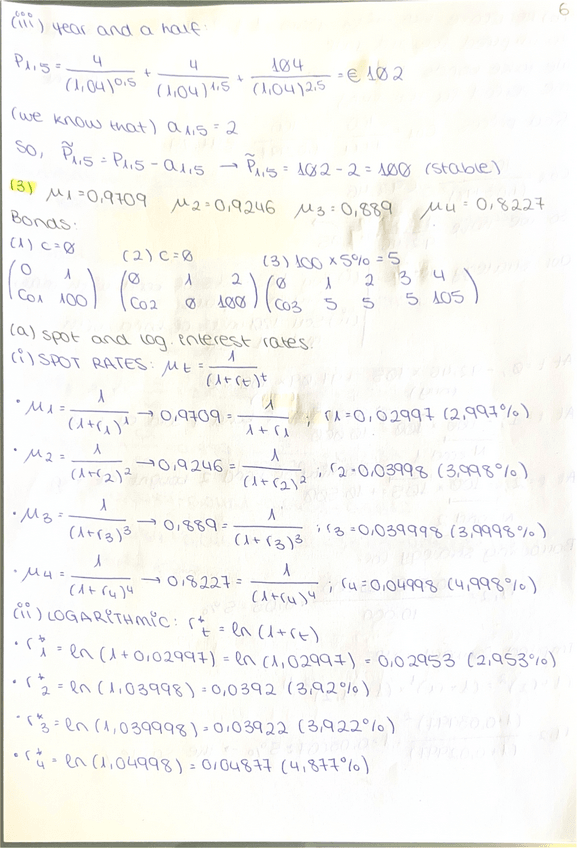 6
(iii) year and a half:
P1,5 = 4/(1,04)^0,5 + 4/(1,04)^1,5 + 104/(1,04)^2,5 = € 102
(we know that) a1,5 = 2
So, P̃1,5 = P1,5 - a1,5 → P̃1,5 = 102 - 2 = 100 (stable)
(3) μ1 = 0,9709 μ2 = 0,9246 μ3 = 0,889 μ4 = 0,8227
Bonds:
(1) c=0 (2) c=0 (3) 100 x 5% = 5
(0 1) (0 1 2) (0 1 2 3 4)
(C01 100) (C02 0 100) (C03 5 5 5 105)
(a) spot and log. interest rates.
(i) SPOT RATES: μt = 1/(1+rt)^t
• μ1 = 1/(1+r1)^1 → 0,9709 = 1/1+r1 ; r1 = 0,02997 (2,997%)
• μ2 = 1/(1+r2)^2 → 0,9246 = 1/(1+r2)^2 ; r2 = 0,03998 (3,998%)
• μ3 = 1/(1+r3)^3 → 0,889 = 1/(1+r3)^3 ; r3 = 0,039998 (3,9998%)
• μ4 = 1/(1+r4)^4 → 0,8227 = 1/(1+r4)^4 ; r4 = 0,04998 (4,998%)
(ii) LOGARITHMIC: r*t = ln (1+rt)
• r*1 = ln (1+0,02997) = ln (1,02997) = 0,02953 (2,953%)
• r*2 = ln (1,03998) = 0,0392 (3,92%)
• r*3 = ln (1,039998) = 0,03922 (3,922%)
• r*4 = ln (1,04998) = 0,04877 (4,877%)